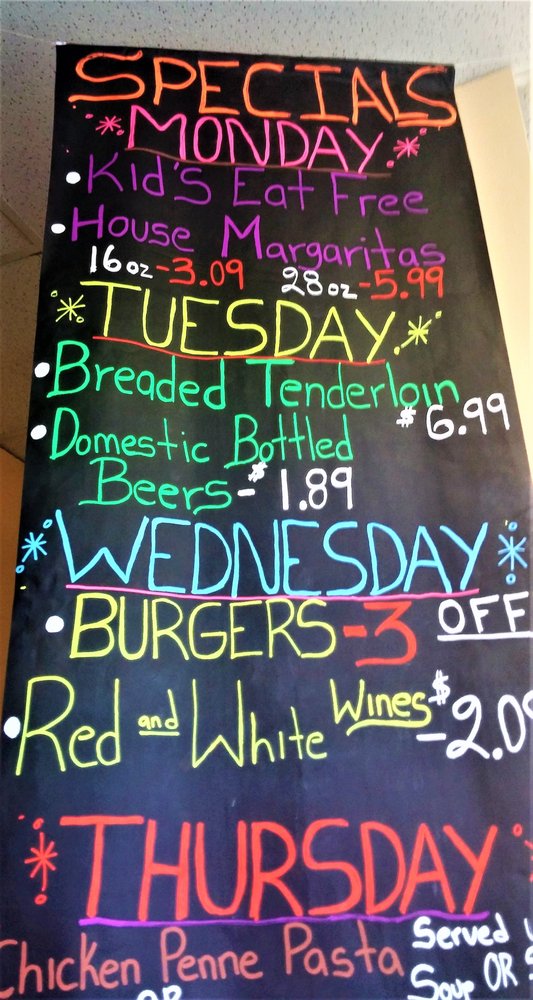 SPECIALS
MONDAY
Kid's Eat Free
House Margaritas
16oz-3.09 28oz-5.99
TUESDAY
Breaded Tenderloin
$6.99
Domestic Bottled
Beers-$1.89
WEDNESDAY
BURGERS-3 OFF
Red and White Wines-$2.09
THURSDAY
Chicken Penne Pasta Served
OR Soup OR